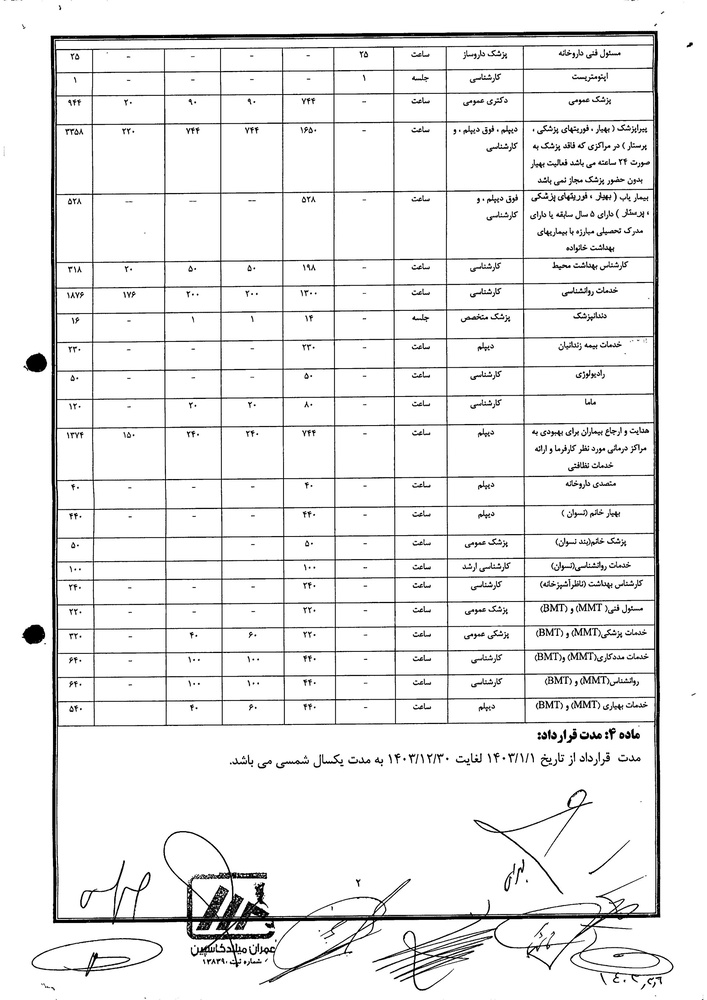 مسئول فنی داروخانه پزشک داروساز ساعت ۲۵ - - - - ۲۵
اپتومتریست کارشناسی جلسه ۱ - - - - ۱
پزشک عمومی دکتری عمومی ساعت - ۷۴۴ ۹۰ ۹۰ ۲۰ ۹۴۴
پیراپزشک ( بهیار ، فوریتهای پزشکی ، دیپلم ، فوق دیپلم ، و ساعت - ۱۶۵۰ ۷۴۴ ۷۴۴ ۲۲۰ ۳۳۵۸
پرستار ) در مراکزی که فاقد پزشک به کارشناسی
صورت ۲۴ ساعته می باشد فعالیت بهیار
بدون حضور پزشک مجاز نمی باشد
بیمار یاب ( بهیار ، فوریتهای پزشکی فوق دیپلم ، و ساعت - ۵۲۸ -- -- -- ۵۲۸
، پرستار ) دارای ۵ سال سابقه یا دارای کارشناسی
مدرک تحصیلی مبارزه با بیماریهای
بهداشت خانواده
کارشناس بهداشت محیط کارشناسی ساعت - ۱۹۸ ۵۰ ۵۰ ۲۰ ۳۱۸
خدمات روانشناسی کارشناسی ساعت - ۱۳۰۰ ۲۰۰ ۲۰۰ ۱۷۶ ۱۸۷۶
دندانپزشک پزشک متخصص جلسه - ۱۴ ۱ ۱ - ۱۶
خدمات بیمه زندانیان دیپلم ساعت - ۲۳۰ - - - ۲۳۰
رادیولوژی کارشناسی ساعت - ۵۰ - - - ۵۰
ماما کارشناسی ساعت - ۸۰ ۲۰ ۲۰ - ۱۲۰
هدایت و ارجاع بیماران برای بهبودی به دیپلم ساعت - ۷۴۴ ۲۴۰ ۲۴۰ ۱۵۰ ۱۳۷۴
مراکز درمانی مورد نظر کارفرما و ارائه
خدمات نظافتی
متصدی داروخانه دیپلم ساعت - ۴۰ - - - ۴۰
بهیار خانم (نسوان ) دیپلم ساعت - ۴۴۰ - - - ۴۴۰
پزشک خانم(بند نسوان) پزشک عمومی ساعت - ۵۰ - ۵۰
خدمات روانشناسی(نسوان) کارشناسی ارشد ساعت - ۱۰۰ ۱۰۰
کارشناس بهداشت (ناظرآشپزخانه) کارشناسی ساعت - ۲۴۰ - - - ۲۴۰
مسئول فنی( MMT) و (BMT) پزشک عمومی ساعت - ۲۲۰ - - - ۲۲۰
خدمات پزشکی(MMT) و (BMT) پزشکی عمومی ساعت - ۲۲۰ ۶۰ ۴۰ - ۳۲۰
خدمات مددکاری(MMT) و(BMT) کارشناسی ساعت - ۴۴۰ ۱۰۰ ۱۰۰ - ۶۴۰
روانشناس(MMT) و (BMT) کارشناسی ساعت - ۴۴۰ ۱۰۰ ۱۰۰ - ۶۴۰
خدمات بهیاری (MMT) و (BMT) دیپلم ساعت - ۴۴۰ ۶۰ ۴۰ ۵۴۰
ماده ۴: مدت قرارداد:
مدت قرارداد از تاریخ ۱۴۰۳/۱/۱ لغایت ۱۴۰۳/۱۲/۳۰ به مدت یکسال شمسی می باشد.
۲
عمران میلاد کاسپین
شماره ثبت ۱۳۸۳۹۰